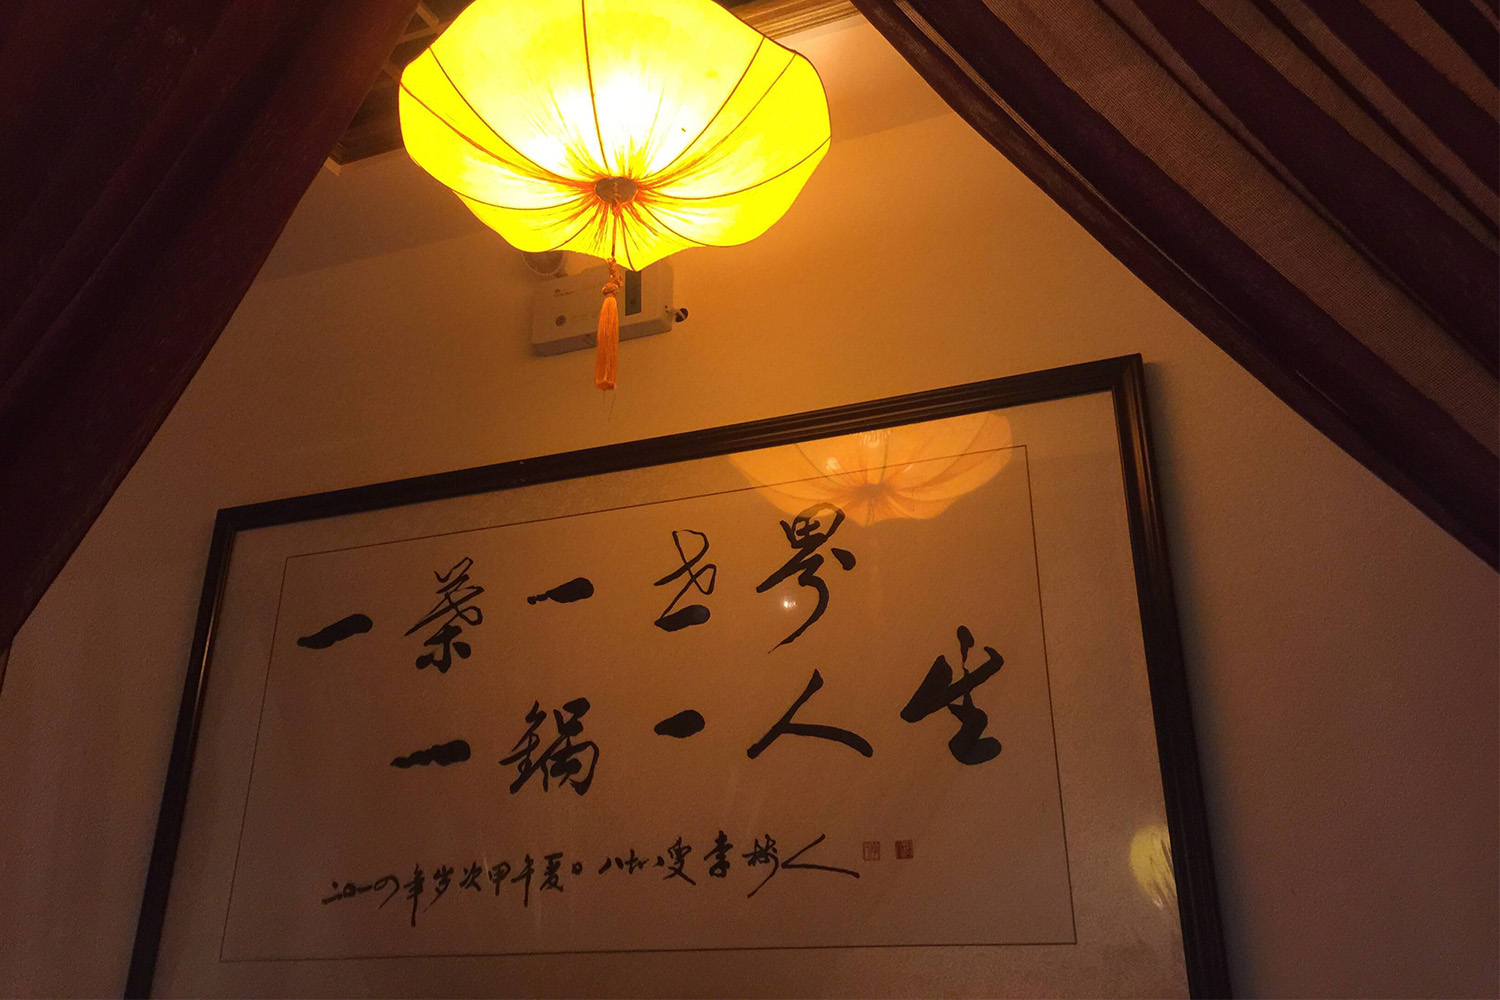 一葉一世界
一鍋一人生
二〇一四年岁次甲午夏日 八十八叟李树人